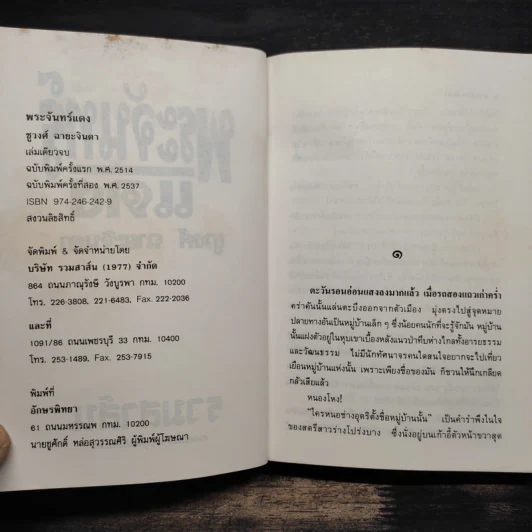 พระจันทร์แดง
ชูวงศ์ ฉายะจินดา
เล่มเดียวจบ
ฉบับพิมพ์ครั้งแรก พ.ศ. 2514
ฉบับพิมพ์ครั้งที่สอง พ.ศ. 2537
ISBN 974-246-242-9
สงวนลิขสิทธิ์
จัดพิมพ์ & จัดจำหน่ายโดย
บริษัท รวมสาส์น (1977) จำกัด
864 ถนนภาณุรังษี วังบูรพา กทม. 10200
โทร. 226-3808, 221-6483, Fax. 222-2036
และที่
1091/86 ถนนเพชรบุรี 33 กทม. 10400
โทร. 253-1489, Fax. 253-7915
พิมพ์ที่
อักษรพิทยา
61 ถนนมหรรณพ กทม. 10200
นายชูศักดิ์ หล่อสุวรรณศิริ ผู้พิมพ์ผู้โฆษณา
๑
ตะวันรอนอ่อนแสงลงมากแล้ว เมื่อรถสองแถวเก่าคร่ำ
คร่าคันนั้นแล่นตะบึงออกจากตัวเมือง มุ่งตรงไปสู่จุดหมาย
ปลายทางอันเป็นหมู่บ้านเล็ก ๆ ซึ่งน้อยคนนักที่จะรู้จักมัน หมู่บ้าน
นั้นแฝงตัวอยู่ในหุบเขาเบื้องหลังแนวป่าทึบห่างไกลทั้งอารยธรรม
และวัฒนธรรม ไม่มีนักทัศนาจรคนใดสนใจอยากจะไปเที่ยว
เยี่ยมหมู่บ้านแห่งนั้น เพราะเพียงชื่อของมัน ก็ชวนให้นึกเกลียด
กลัวเสียแล้ว
หนองโหง!
"ใครหนอช่างอุตริตั้งชื่อหมู่บ้านนั้น" เป็นคำรำพึงในใจ
ของสตรีสาวร่างโปร่งบาง ซึ่งนั่งอยู่บนเก้าอี้ตัวหน้าขวาสุด